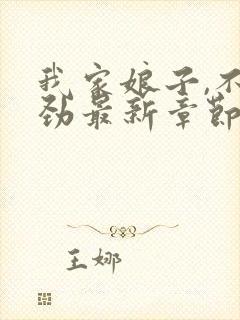 我家娘子,不
劲最新章节
王娜